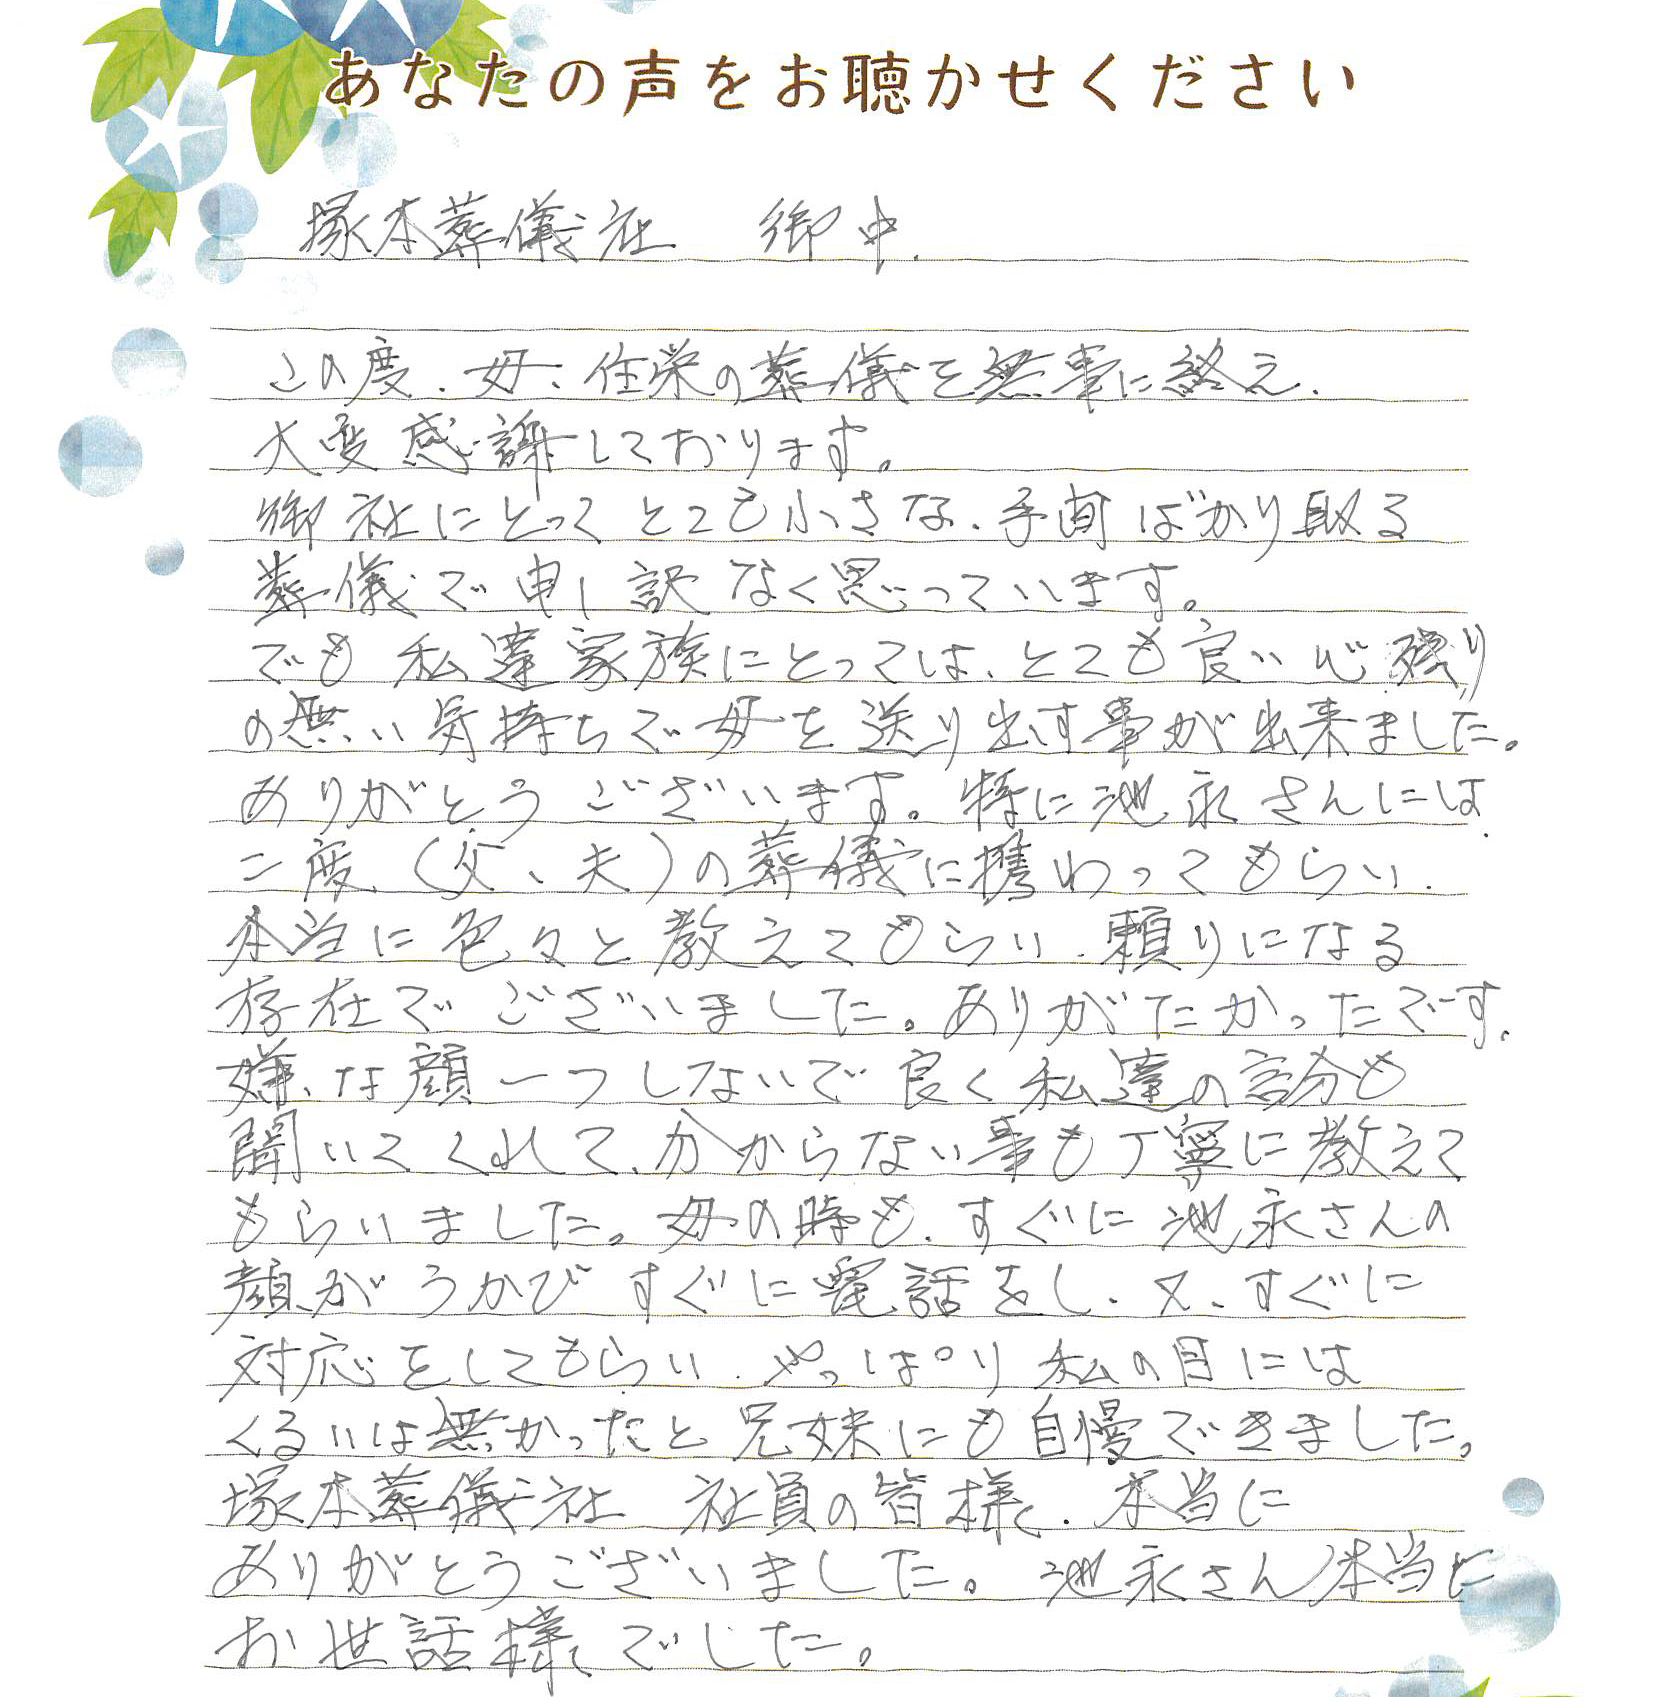 あなたの声をお聴かせください
塚本葬儀社 御中
この度、母、住栄の葬儀を無事に終え、
大変感謝しております。
御社にとってとても小さな、手間ばかり取る
葬儀で申し訳なく思っています。
でも私達家族にとっては、とても良い心残り
の無い気持ちで母を送り出す事が出来ました。
ありがとうございます。特に池永さんには
二度（父、夫）の葬儀に携わってもらい、
本当に色々と教えてもらい、頼りになる
存在でございました。ありがたかったです。
嫌な顔一つしないで良く私達の言分も
聞いてくれて、分からない事も丁寧に教えて
もらいました。母の時も、すぐに池永さんの
顔がうかびすぐに電話をし、又、すぐに
対応をしてもらい、やっぱり私の目には
くるいは無かったと兄妹にも自慢できました。
塚本葬儀社 社員の皆様、本当に
ありがとうございました。池永さん本当に
お世話様でした。